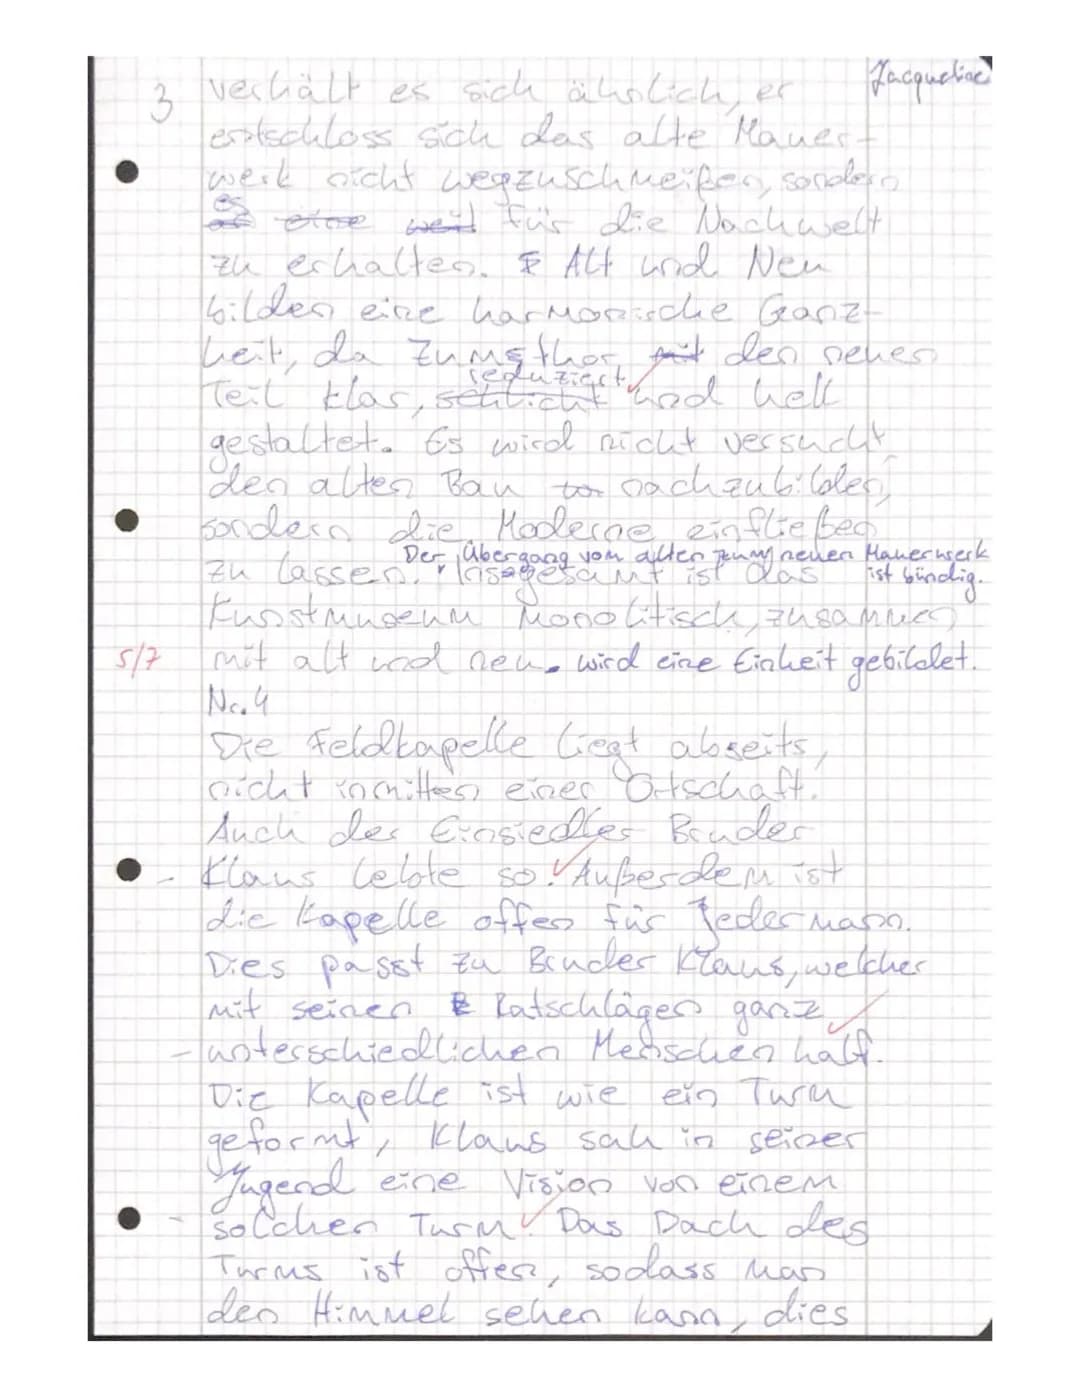 Jacqueline
3 verhält es sich ähnlich, er
entschloss sich das alte Mauer-
werk nicht wegzuschmeißen, sondern
es für die Nachwelt
zu erhalten. Alt und Neu
bilden eine harmonische Ganz-
heit, da Zumsthor den neuen
reduziert
Teil klar, schlicht und hell
gestaltet. Es wird nicht versucht
den alten Bau nachzubilden,
sondern die Moderne einfließen
Der Übergang vom alten zum neuen Mauerwerk
ist bündig.
zu lassen. Insgesamt ist das
Kunstmuseum Monolitisch, zusammen
5/7 mit alt und neu wird eine Einheit gebildet.
Nr. 4
Die Feldkapelle liegt abseits,
nicht inmitten einer Ortschaft.
Auch der Einsiedler Bruder
- Klaus lebte so. Außerdem ist
die Kapelle offen für Jedermann.
Dies passt zu Bruder Klaus, welcher
mit seinen Ratschlägen ganz
- unterschiedlichen Menschen half.
Die Kapelle ist wie ein Turm
geformt, Klaus sah in seiner
Jugend eine Vision von einem
- solchen Turm. Das Dach des
Turms ist offen, sodass man
den Himmel sehen kann, dies